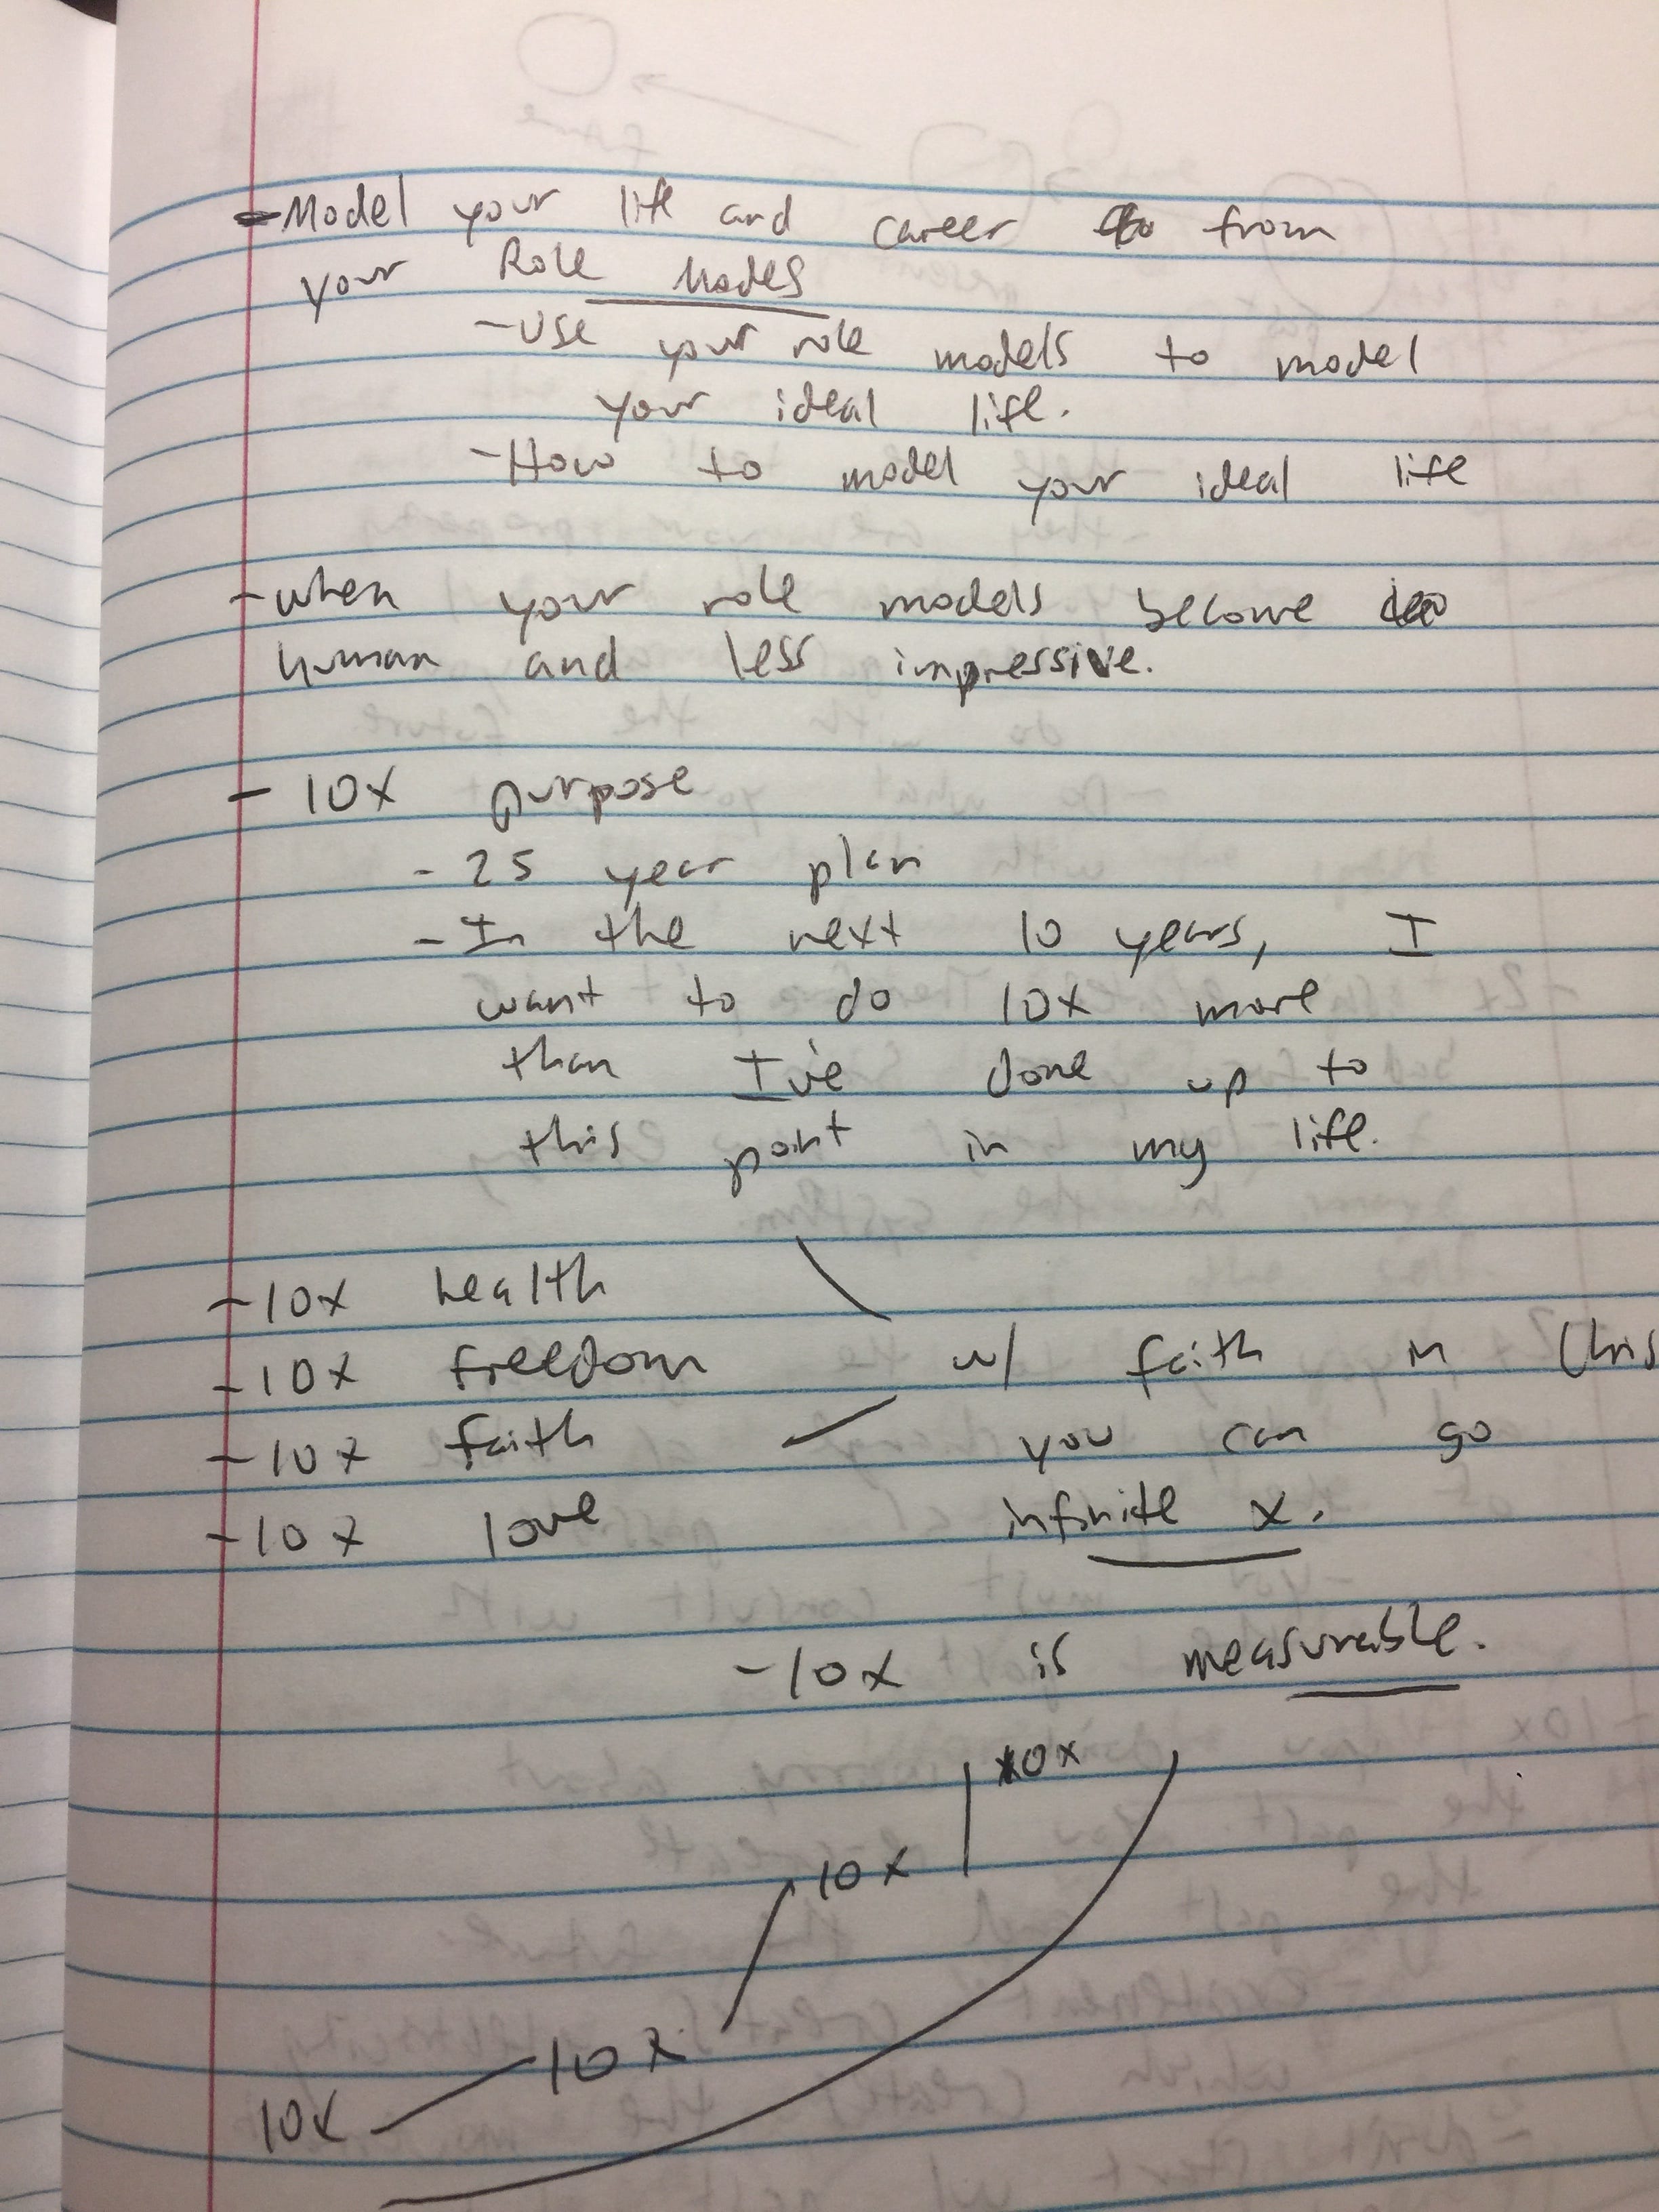 - Model your life and career from
your Role Models
- Use your role models to model
your ideal life.
- How to model your ideal life
- when your role models become
human and less impressive.
- 10x purpose
- 25 year plan
- In the next 10 years, I
want to do 10x more
than I've done up to
this point in my life.
- 10x health
- 10x freedom
- 10x faith
- 10x love
w/ faith in Chris
you can go
infinite x.
- 10x is measurable.
10x
10x
10x
10x